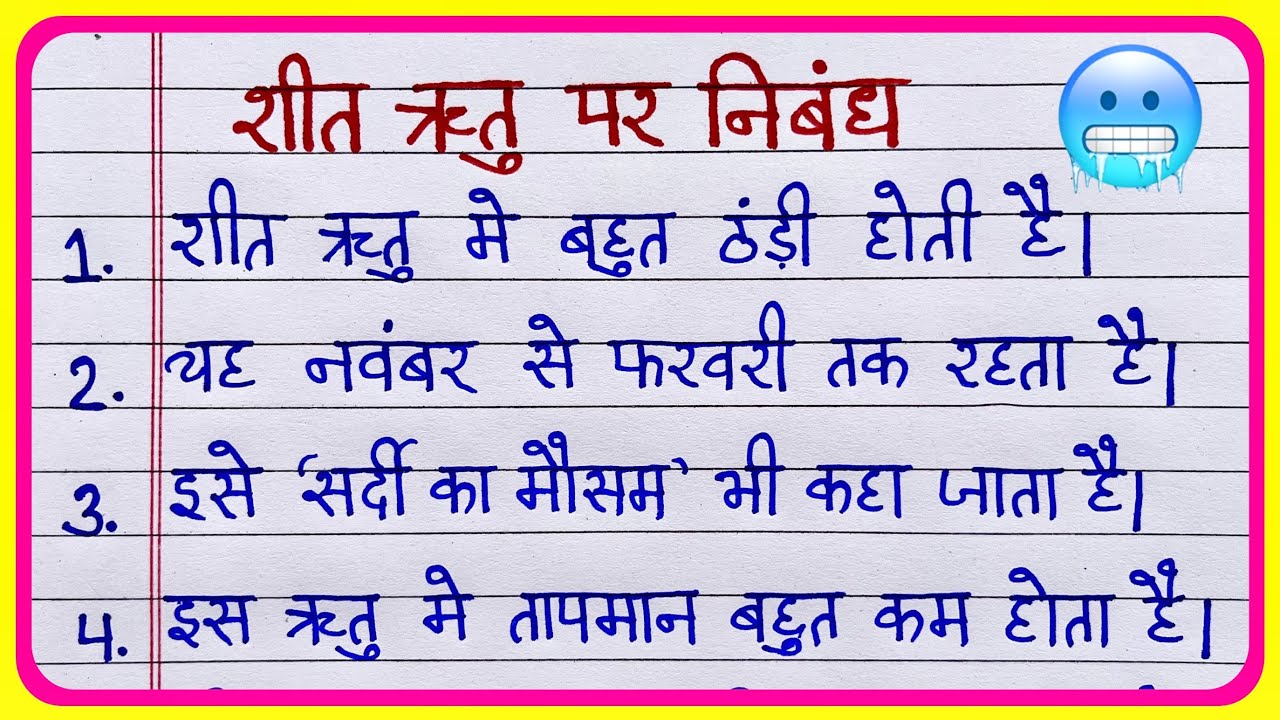 शीत ऋतु पर निबंध
1. शीत ऋतु मे बहुत ठंड़ी होती है।
2. यह नवंबर से फरवरी तक रहता है।
3. इसे 'सर्दी का मौसम' भी कहा जाता है।
4. इस ऋतु मे तापमान बहुत कम होता है।